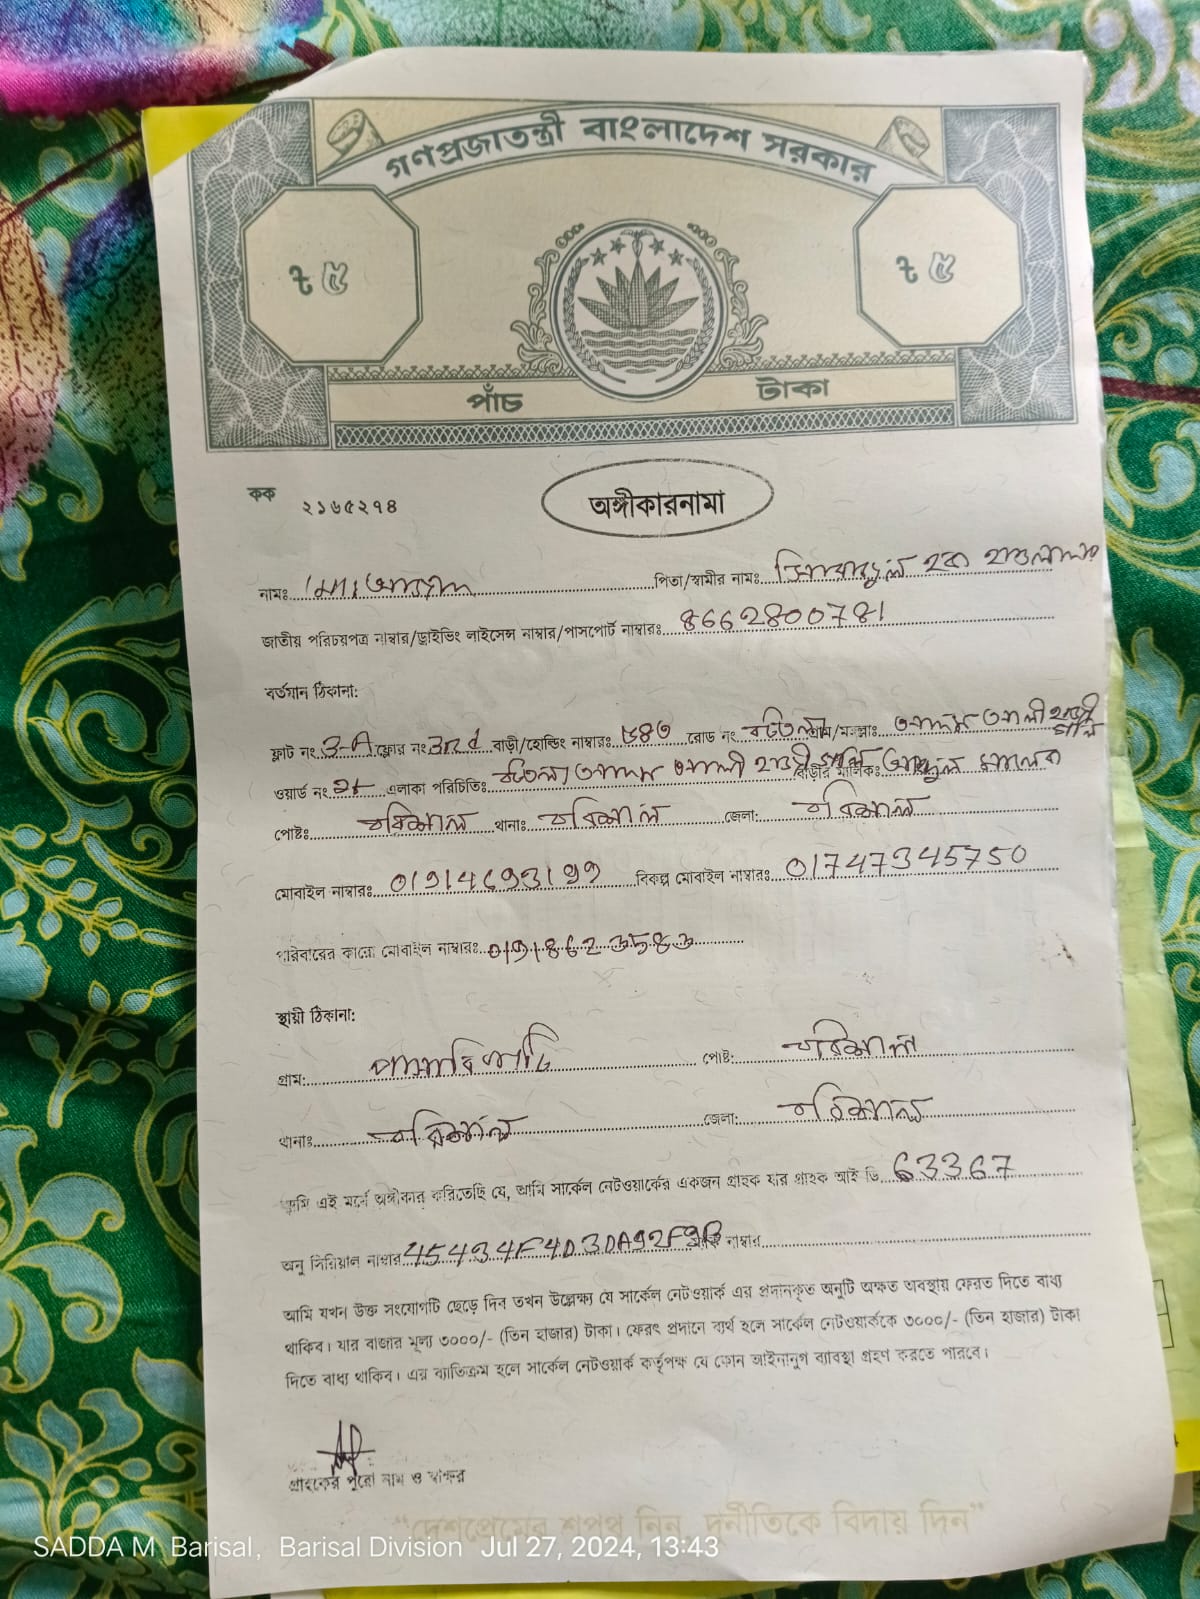 গণপ্রজাতন্ত্রী বাংলাদেশ সরকার
৳ ৫
৳ ৫
পাঁচ টাকা
কক ২১৬৫২৭৪
অঙ্গীকারনামা
নামঃ মোঃ পিতা/স্বামীর নামঃ হক হাওলাদার
জাতীয় পরিচয়পত্র নাম্বার/ড্রাইভিং লাইসেন্স নাম্বার/পাসপোর্ট নাম্বারঃ 8662800781
বর্তমান ঠিকানা:
ফ্লাট নং 3-A ফ্লোর নং 3rd বাড়ী/হোল্ডিং নাম্বারঃ রোড নং বটতলা গ্রাম/মহল্লাঃ আদম আলী হাজী গলি
ওয়ার্ড নং এলাকা পরিচিতিঃ বটতলা আদম আলী হাজী গলি বাড়ীর মালিকঃ আব্দুল মালেক
পোষ্টঃ বরিশাল থানাঃ বরিশাল জেলা: বরিশাল
মোবাইল নাম্বারঃ বিকল্প মোবাইল নাম্বারঃ 01747345750
পরিবারের কারো মোবাইল নাম্বারঃ
স্থায়ী ঠিকানা:
গ্রাম: পোষ্ট: বরিশাল
থানাঃ বরিশাল জেলা: বরিশাল
আমি এই মর্মে অঙ্গীকার করিতেছি যে, আমি সার্কেল নেটওয়ার্কের একজন গ্রাহক যার গ্রাহক আই ডি 63367
অনু সিরিয়াল নাম্বার নাম্বার
আমি যখন উক্ত সংযোগটি ছেড়ে দিব তখন উল্লেক্ষ্য যে সার্কেল নেটওয়ার্ক এর প্রদানকৃত অনুটি অক্ষত অবস্থায় ফেরত দিতে বাধ্য
থাকিব। যার বাজার মূল্য ৩০০০/- (তিন হাজার) টাকা। ফেরৎ প্রদানে ব্যর্থ হলে সার্কেল নেটওয়ার্ককে ৩০০০/- (তিন হাজার) টাকা
দিতে বাধ্য থাকিব। এর ব্যাতিক্রম হলে সার্কেল নেটওয়ার্ক কর্তৃপক্ষ যে কোন আইনানুগ ব্যাবস্থা গ্রহণ করতে পারবে।
গ্রাহকের পুরো নাম ও স্বাক্ষর
“দেশপ্রেমের শপথ নিন, দুর্নীতিকে বিদায় দিন”
SADDA M Barisal, Barisal Division Jul 27, 2024, 13:43